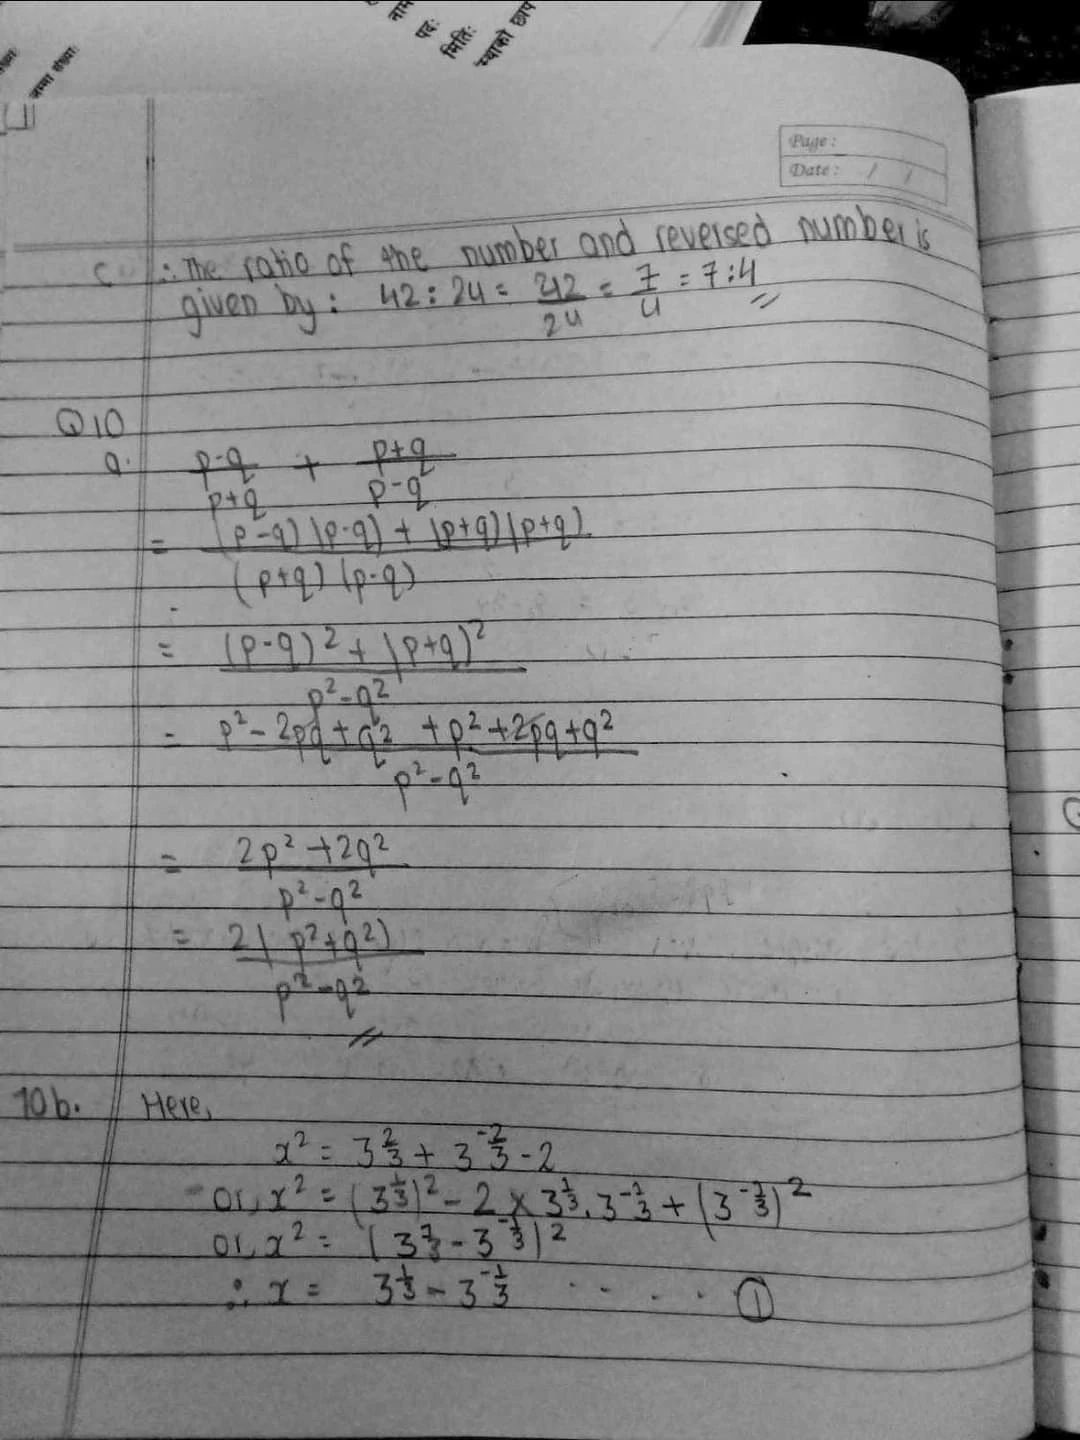 नाम
पदः
मितिः
स्थाको छाप
जम्मा संख्याः
Page :
Date : / /
c ∴ The ratio of the number and reversed number is
given by : 42 : 24 = 42/24 = 7/4 = 7:4
Q10
a. p-q/p+q + p+q/p-q
= (p-q)(p-q) + (p+q)(p+q) / (p+q)(p-q)
= (p-q)² + (p+q)² / p²-q²
= p² - 2pq + q² + p² + 2pq + q² / p²-q²
= 2p² + 2q² / p²-q²
= 2(p²+q²) / p²-q²
10b. Here,
x² = 3^(2/3) + 3^(-2/3) - 2
or, x² = (3^(1/3))² - 2 × 3^(1/3) . 3^(-1/3) + (3^(-1/3))²
or, x² = (3^(1/3) - 3^(-1/3))²
∴ x = 3^(1/3) - 3^(-1/3) . . . . . ①